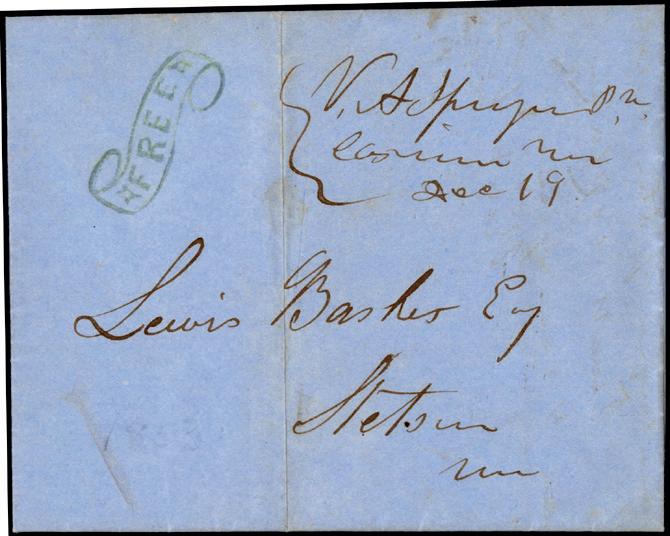 FREE
V. A Sprague P. M.
Corinna Me
Dec 19
Lewis Barker Esq
Stetson
Me